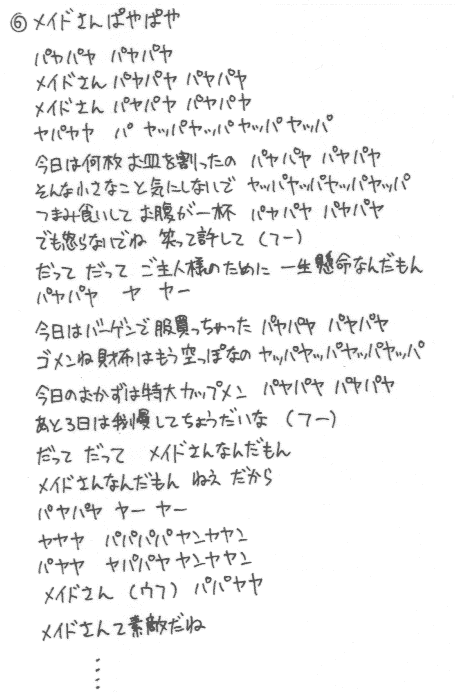 ⑥ メイドさんぱやぱや
パヤパヤ パヤパヤ
メイドさん パヤパヤ パヤパヤ
メイドさん パヤパヤ パヤパヤ
ヤパヤヤ パ ヤッパヤッパヤッパヤッパ
今日は何枚お皿を割ったの パヤパヤ パヤパヤ
そんな小さなこと気にしないで ヤッパヤッパヤッパヤッパ
つまみ食いして お腹が一杯 パヤパヤ パヤパヤ
でも怒らないでね 笑って許して (フー)
だって だって ご主人様のために 一生懸命なんだもん
パヤパヤ ヤ ヤー
今日はバーゲンで服買っちゃった パヤパヤ パヤパヤ
ゴメンね財布はもう空っぽなの ヤッパヤッパヤッパヤッパ
今日のおかずは特大カップメン パヤパヤ パヤパヤ
あと3日は我慢してちょうだいな (フー)
だって だって メイドさんなんだもん
メイドさんなんだもん ねえ だから
パヤパヤ ヤー ヤー
ヤヤヤ パパパパヤンヤヤン
パヤヤ ヤパパヤヤンヤヤン
メイドさん (ウフ) パパヤヤ
メイドさんて素敵だね
⋮